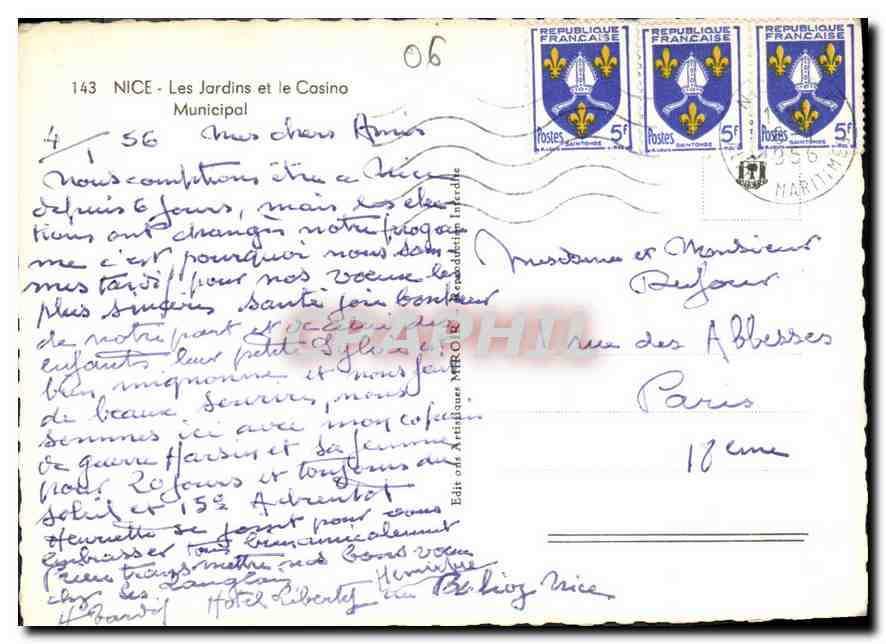 06
143 NICE - Les Jardins et le Casino
Municipal
REPUBLIQUE FRANCAISE
Postes 5F
SAINTONGE
REPUBLIQUE FRANCAISE
Postes 5F
SAINTONGE
REPUBLIQUE FRANCAISE
Postes 5F
SAINTONGE
1956
MARITIMES
4/1 56 Mes chers Amis
Nous comptions être a Nice
depuis 6 jours, mais les elec
tions ont changés notre progra
me c'est pourquoi nous som
mes tardif pour nos voeux les
plus sincères santé joie bonheur
de notre part et de celui des
enfants leur petite Sylvie est
bien mignonne et nous fait
de beaux sourires, nous
sommes ici avec mon copain
de guerre Harsin et sa femme
pour 20 jours et toujours du
soleil et 15° A bientot
Henriette se joint pour vous
embrasser tous bien amicalement
transmettre nos bons voeux
chez les Langlois
H Tardif Hotel Liberty Berlioz Nice
Henriette
Edit ons Artistiques MIROIR Reproduction Interdite
Mesdame et Monsieur
Dufour
rue des Abbesses
Paris
18eme
DELCAMPHIL